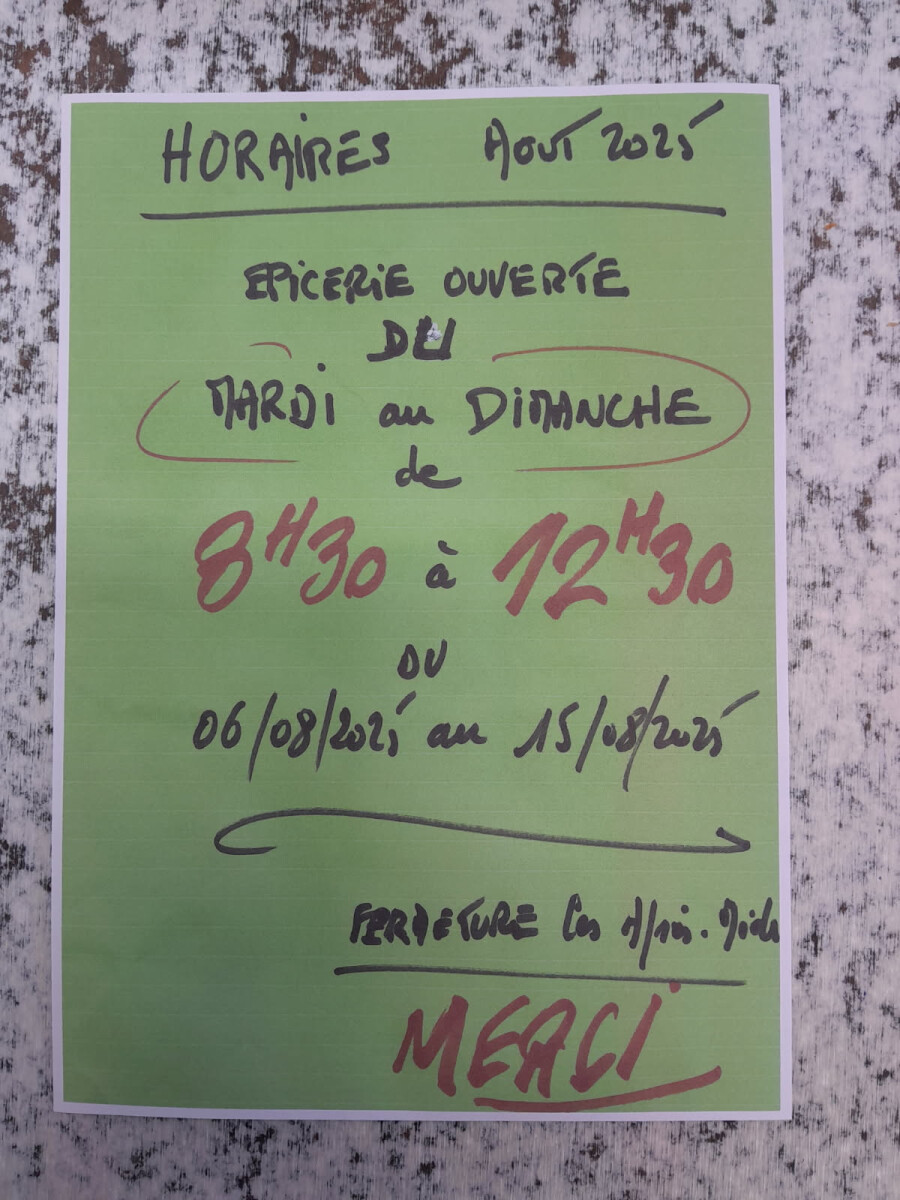 HORAIRES Aout 2025
EPICERIE OUVERTE
DU
MARDI au DIMANCHE
de
8H30 à 12H30
DU
06/08/2025 au 15/08/2025
FERMETURE les A/rès. Midi
MERCI